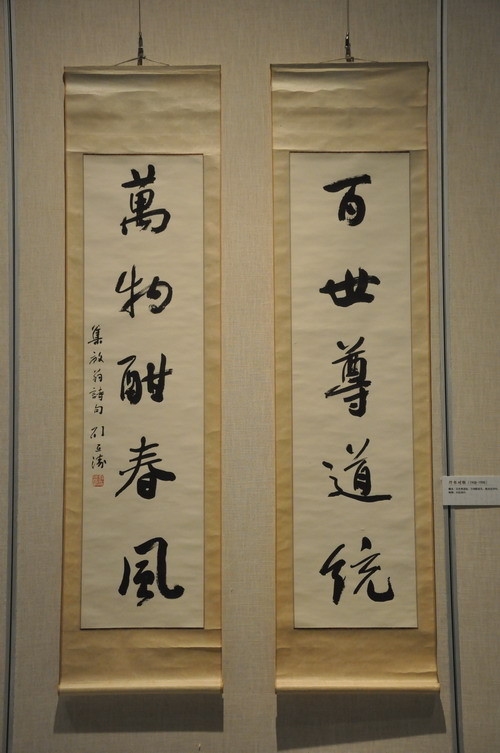 百世尊道統
萬物酣春風
集放翁詩句